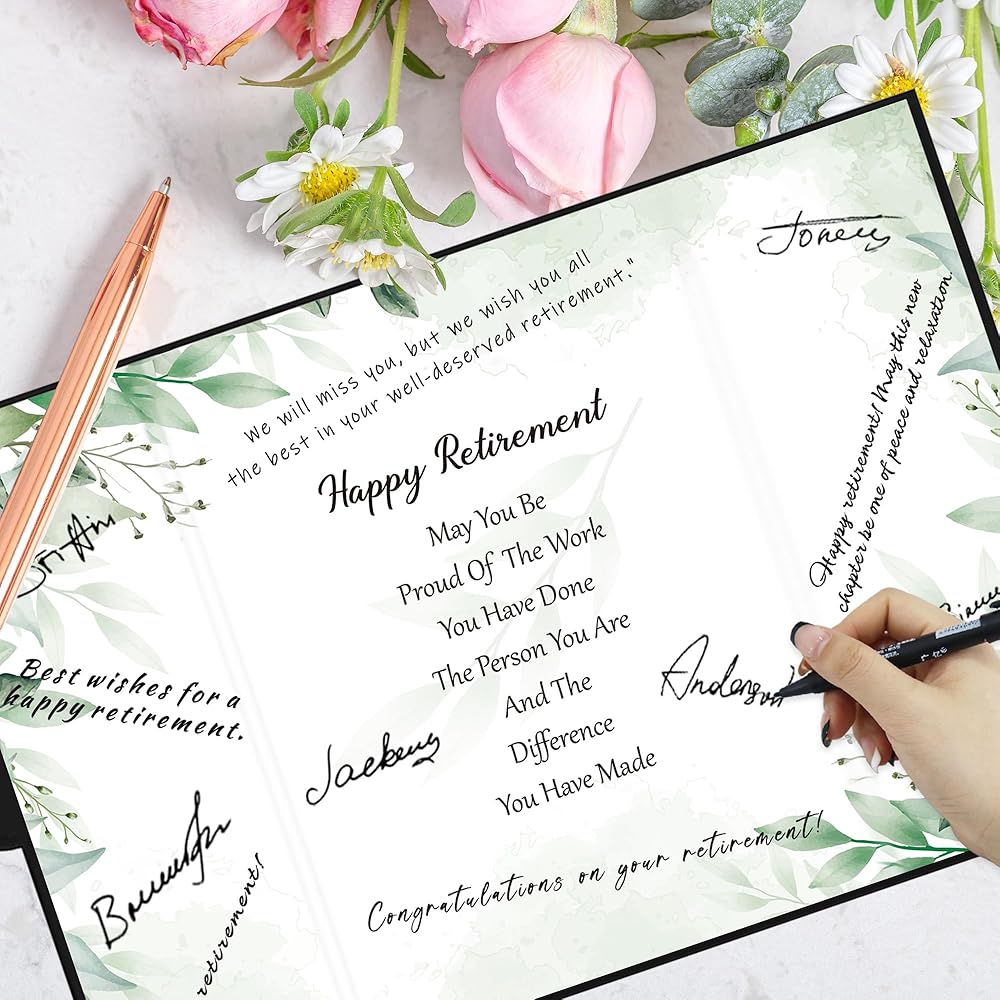 We will miss you, but we wish you all
the best in your well-deserved retirement."
Happy Retirement
May You Be
Proud Of The Work
You Have Done
The Person You Are
And The
Difference
You Have Made
Congratulations on your retirement!
Happy retirement! May this new
chapter be one of peace and relaxation.
Best wishes for a
happy retirement.
retirement!